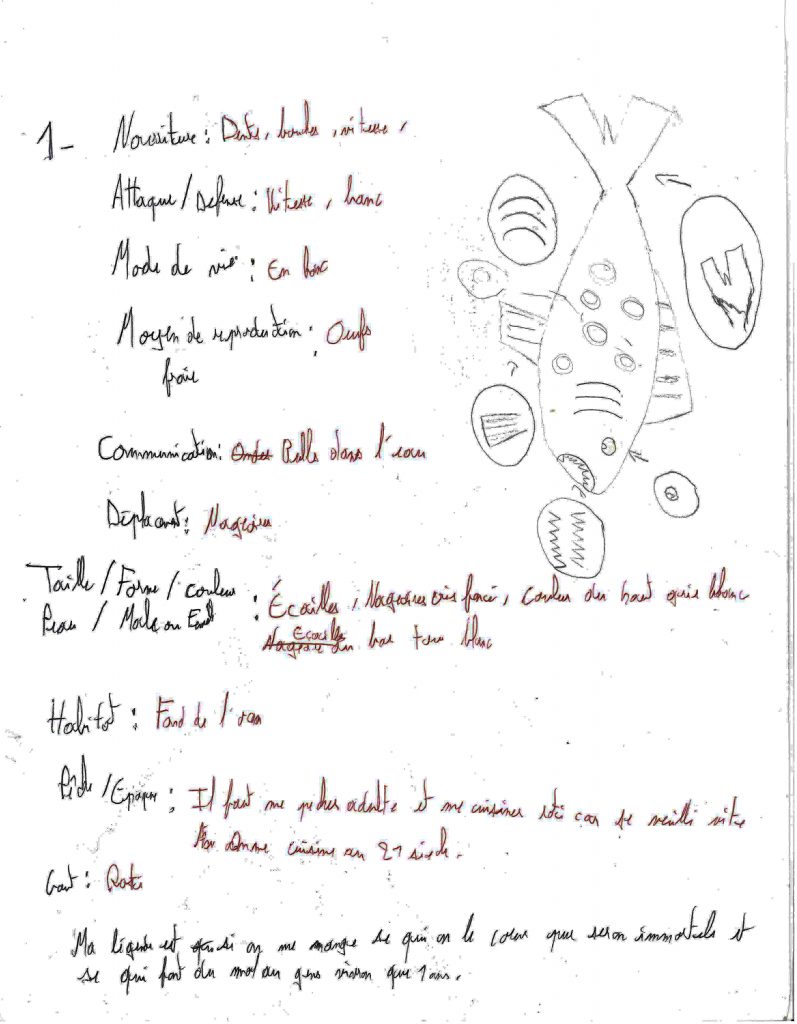 1- Nourriture : Dents, bandes, vitesse,
Attaque / Defense : Vitesse, banc
Mode de vie : En banc
Moyen de reproduction : Oeufs
frais
Communication : Ondes Bulle dans l'eau
Déplacant : Nageoires
Taille / Forme / couleur
Peau / Male ou : Écailles, Nageoires gris foncé, couleur du haut gris blanc
Nageoire Ecailles du bas tous blanc
Habitat : Fond de l'eau
Pêche / Epoque : Il faut me pecher adulte et me cuisiner roti car je vieilli vite
cuisine au 21 siecle.
Gout : Rotie
Ma légende est que si on me mange se qui on le coeur pur seron immortels et
se qui font du mal au gens vivron que 1 ans.